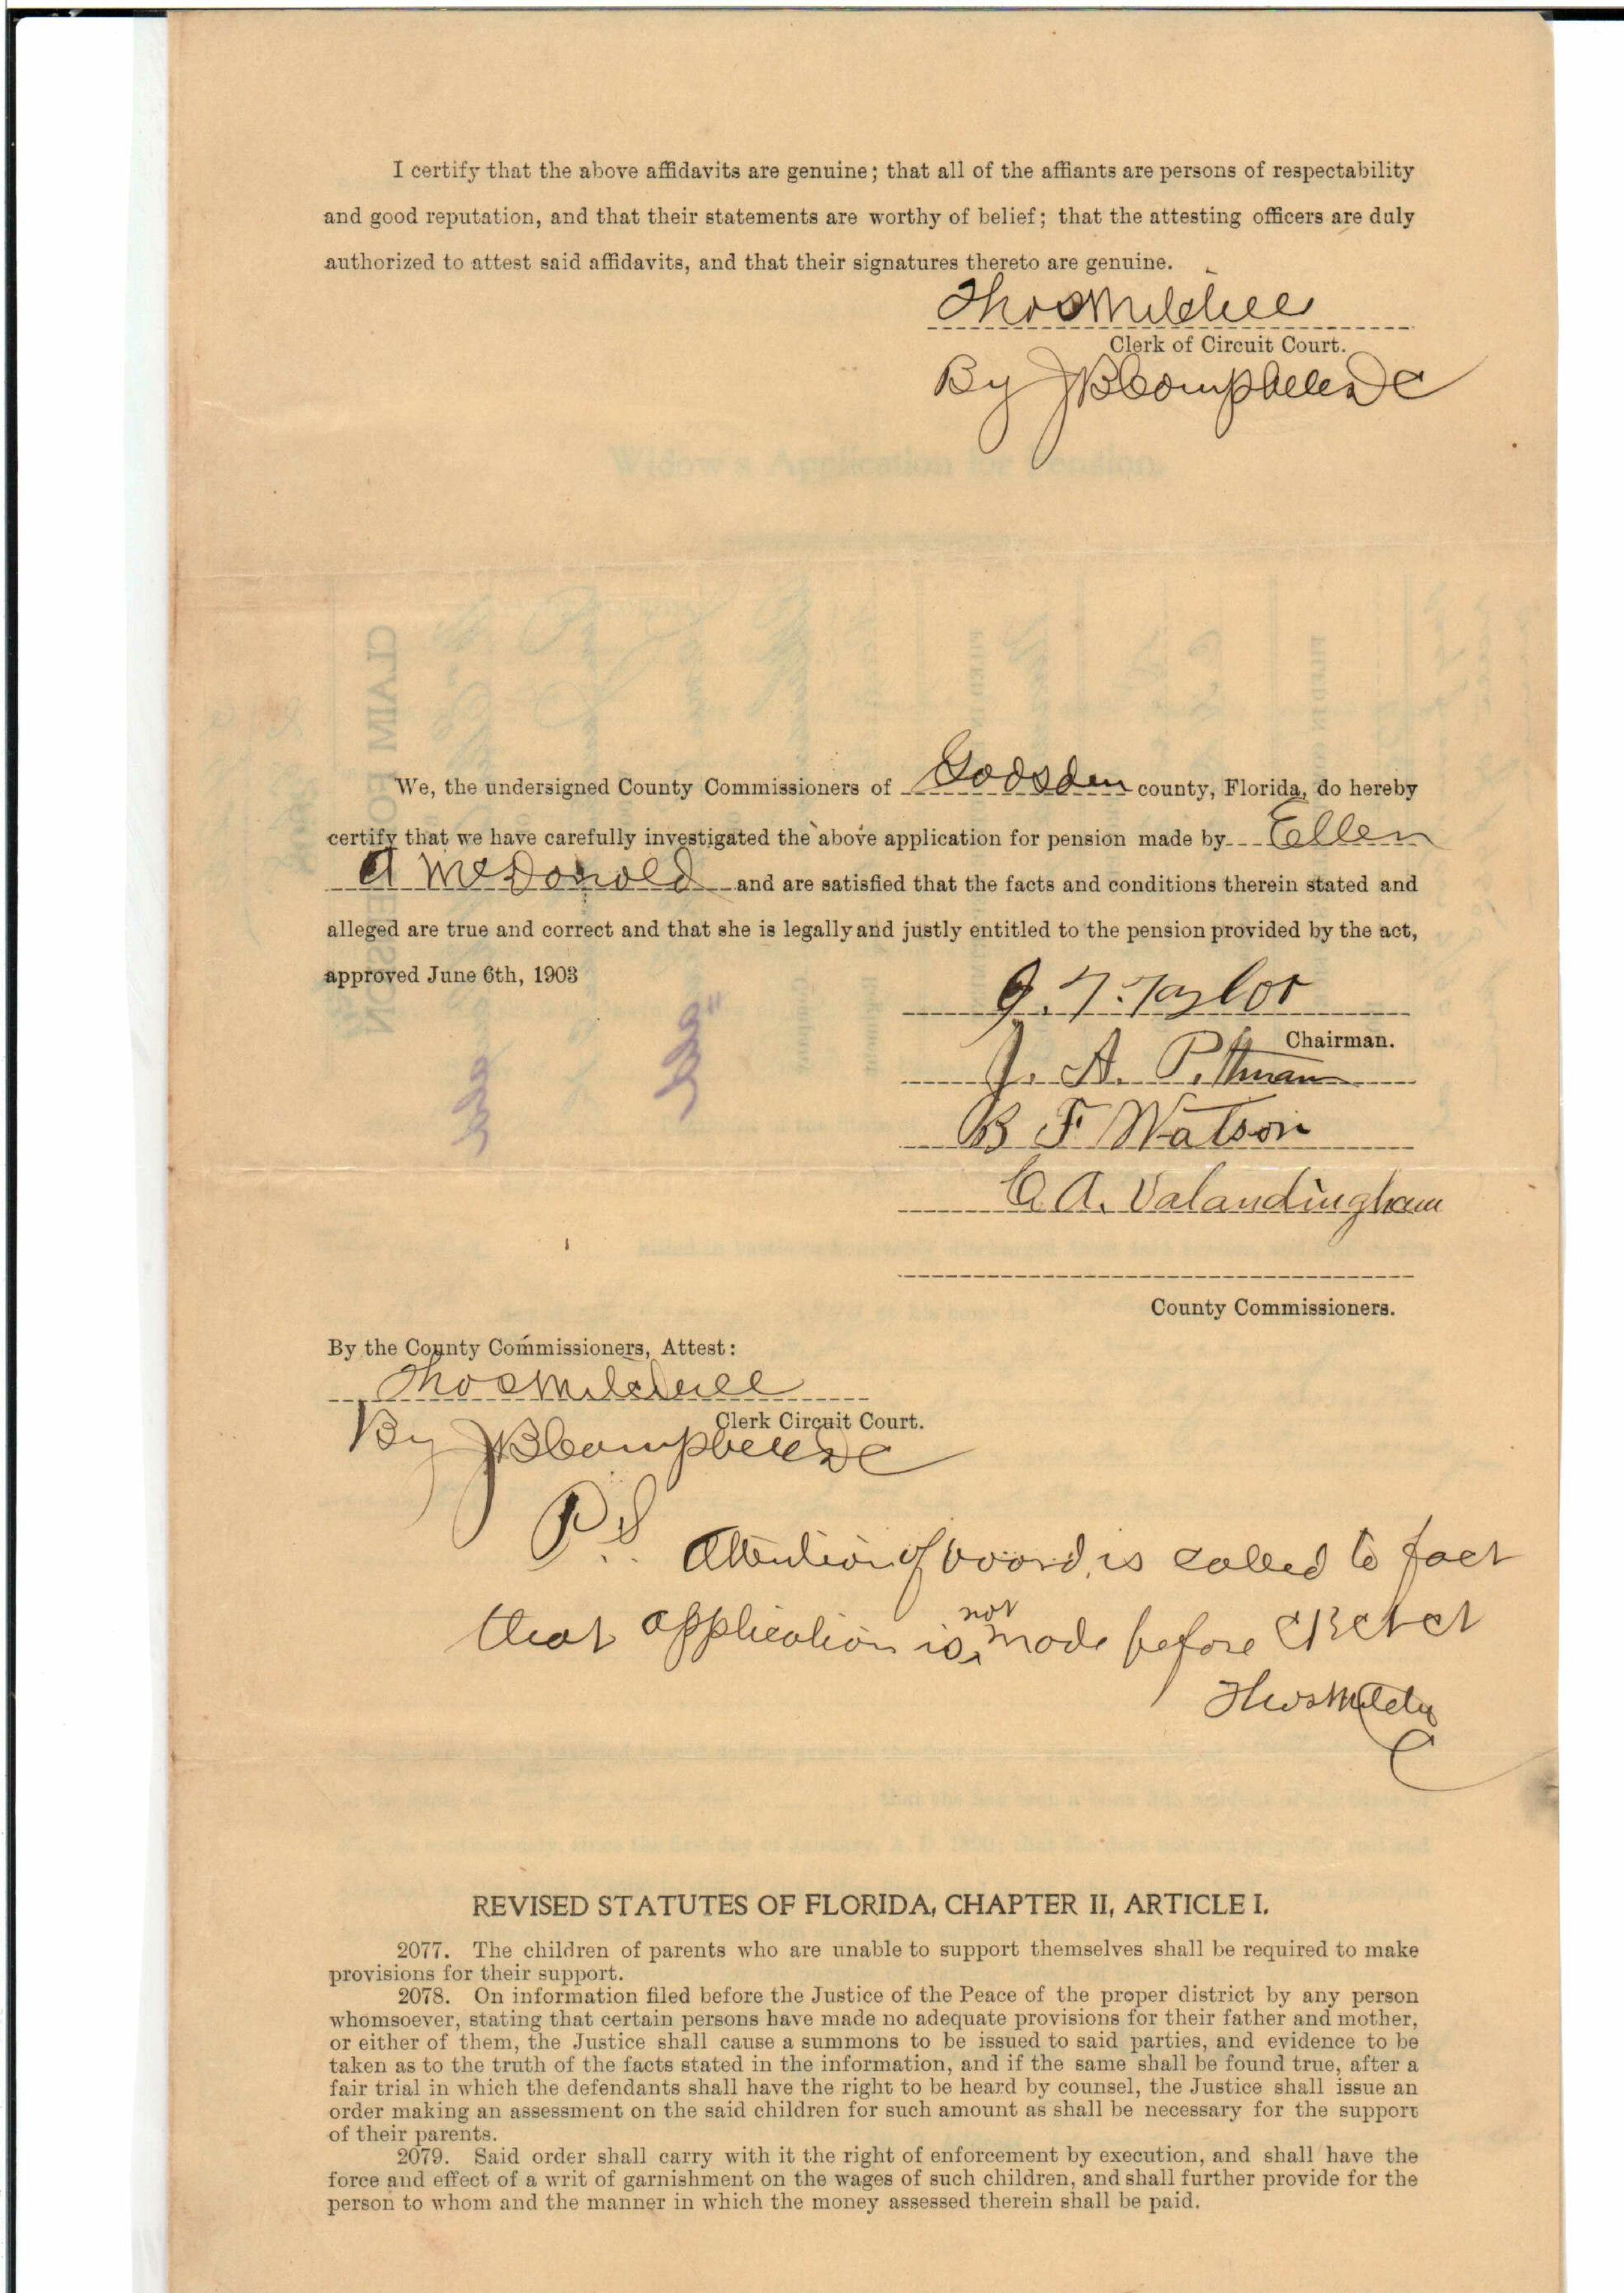 I certify that the above affidavits are genuine; that all of the affiants are persons of respectability
and good reputation, and that their statements are worthy of belief; that the attesting officers are duly
authorized to attest said affidavits, and that their signatures thereto are genuine.
Thos Mitchell
Clerk of Circuit Court.
By J B Campbell DC
Widow's Application for Pension.
CLAIM FOR PENSION
We, the undersigned County Commissioners of Gadsden county, Florida, do hereby
certify that we have carefully investigated the above application for pension made by Ellen
A McDonald and are satisfied that the facts and conditions therein stated and
alleged are true and correct and that she is legally and justly entitled to the pension provided by the act,
approved June 6th, 1903
Taylor
Chairman.
J. A. Pittman
B F Watson
C. A. Valandingham
County Commissioners.
By the County Commissioners, Attest:
Thos Mitchell
Clerk Circuit Court.
By J B Campbell DC
P.S. Attention of board is called to fact
that application is not made before
Thos Mitchell
C
REVISED STATUTES OF FLORIDA, CHAPTER II, ARTICLE I.
2077. The children of parents who are unable to support themselves shall be required to make
provisions for their support.
2078. On information filed before the Justice of the Peace of the proper district by any person
whomsoever, stating that certain persons have made no adequate provisions for their father and mother,
or either of them, the Justice shall cause a summons to be issued to said parties, and evidence to be
taken as to the truth of the facts stated in the information, and if the same shall be found true, after a
fair trial in which the defendants shall have the right to be heard by counsel, the Justice shall issue an
order making an assessment on the said children for such amount as shall be necessary for the support
of their parents.
2079. Said order shall carry with it the right of enforcement by execution, and shall have the
force and effect of a writ of garnishment on the wages of such children, and shall further provide for the
person to whom and the manner in which the money assessed therein shall be paid.